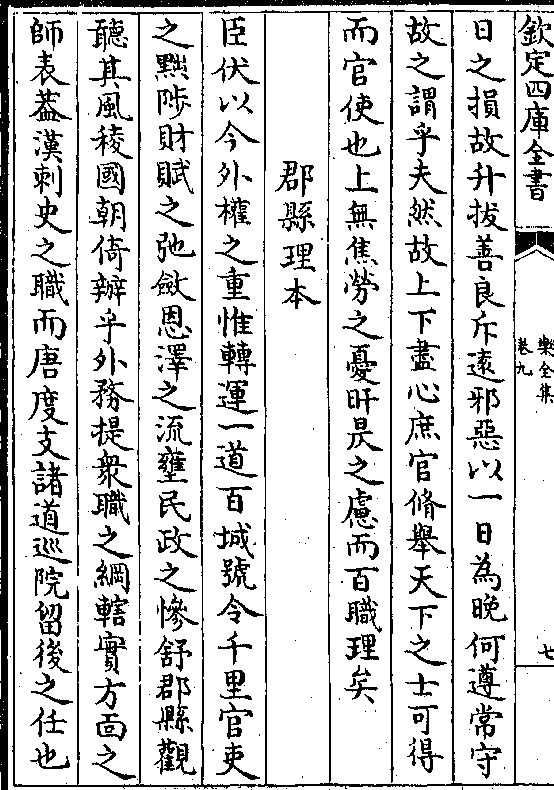 欽定四庫全書
樂全集
卷九
七
日之損故升拔善良斥遠邪惡以一日為晚何遵常守
故之謂乎夫然故上下盡心庶官脩舉天下之士可得
而官使也上無焦勞之憂旰昃之慮而百職理矣
郡縣理本
臣伏以今外權之重惟轉運一道百城號令千里官吏
之黜陟財賦之弛斂恩澤之流壅民政之慘舒郡縣觀
聽其風稜國朝倚辦乎外務提衆職之綱轄實方面之
師表葢漢刺史之職而唐度支諸道巡院留後之任也